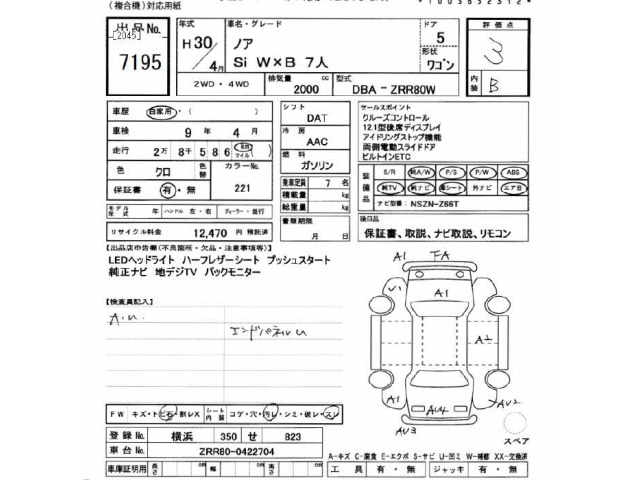 (複合機)対応用紙
出品No.
[2045]
7195
年式
H30/4月
車名・グレード
ノア
Si W×B 7人
ドア
5
形状
ワゴン
評価点
3
内装
B
2WD・4WD
排気量
2000
cc
型式
DBA-ZRR80W
車歴
自家用・( )
車検
9 年 4 月
走行
2万 8千 5 8 6
km
マイル
色
クロ
色替
カラーNo.
221
保証書
有・無
モデル年式
年
ハンドル
左・右
ディーラー・並行
リサイクル料金
12,470 円 預託済
シフト
DAT
冷房
AAC
燃料
ガソリン
乗車定員
7 名
積載量
kg
総重量
kg
書類期限
月 日
セールスポイント
クルーズコントロール
12.1型後席ディスプレイ
アイドリングストップ機能
両側電動スライドドア
ビルトインETC
装備品
S/R
純A/W
P/S
P/W
ABS
純TV
純ナビ
革シート
外ナビ
エアB
ナビ型番:
NSZN-Z66T
後日品
保証書、取説、ナビ取説、リモコン
【出品店申告欄(不良箇所・欠品・注意事項等)】
LEDヘッドライト ハーフレザーシート プッシュスタート
純正ナビ 地デジTV バックモニター
【検査員記入】
A.U
エンドパネルU
A1
FA
A1
A2
A1
AU4
AU2
AU3
スペア
FW
キズ・トビ石・割レX
シート内装
コゲ・穴・汚レ・シミ・破レ・スレ
登録No.
横浜 350 せ 823
車台No.
ZRR80-0422704
車庫証明用
長さ
cm
幅
cm
高さ
cm
A-キズ C-腐食 E-エクボ S-サビ U-凹ミ W-補修 XX-交換済
工具
有・無
ジャッキ
有・無